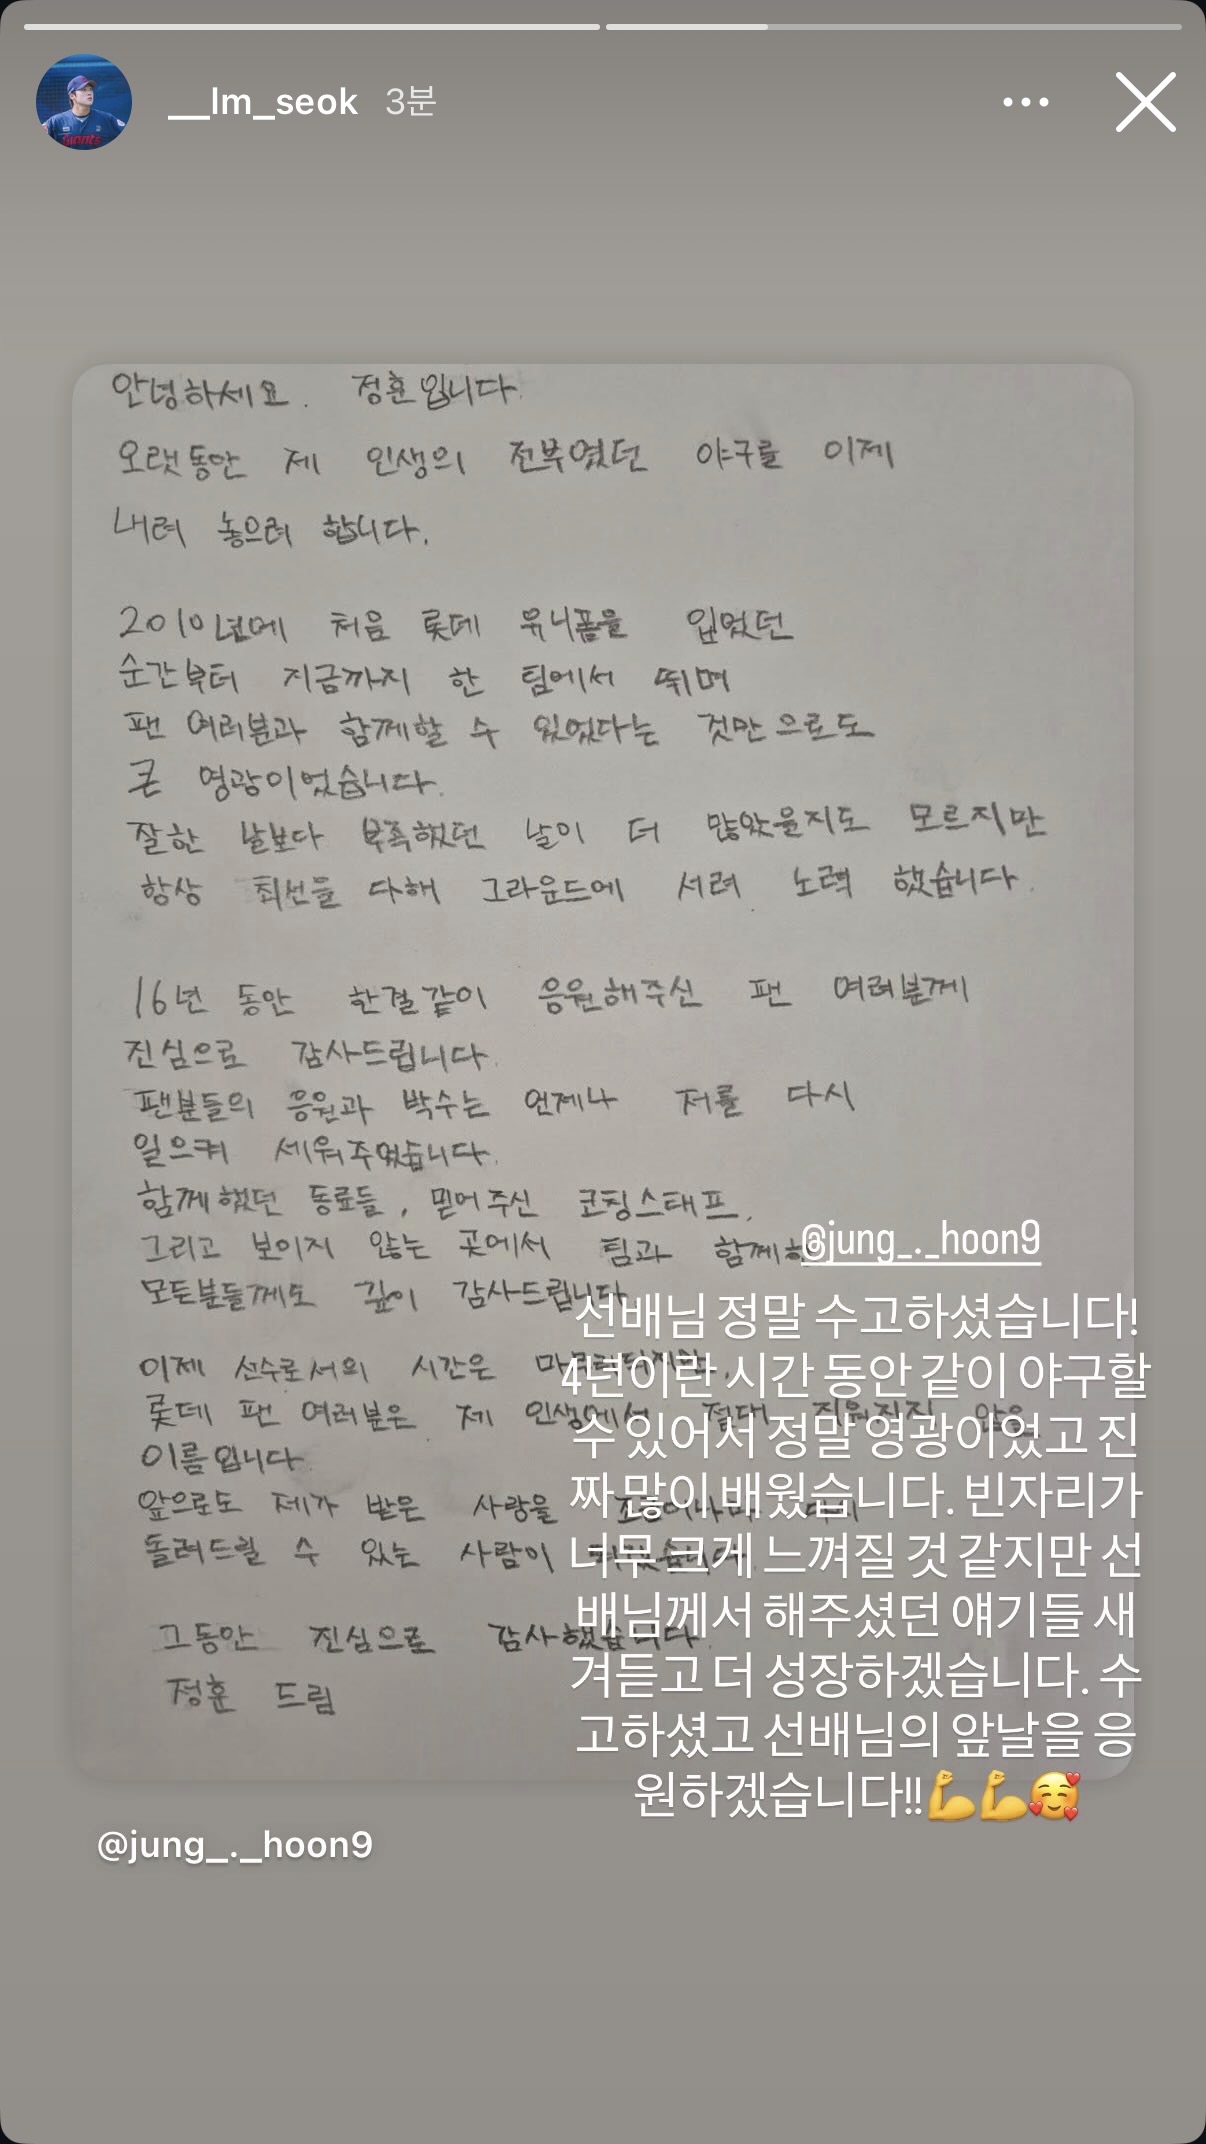 __lm_seok 3분
Giants
안녕하세요. 정훈입니다.
오랫동안 제 인생의 전부였던 야구를 이제
내려 놓으려 합니다.
2010년에 처음 롯데 유니폼을 입었던
순간부터 지금까지 한 팀에서 뛰며
팬 여러분과 함께할 수 있었다는 것만으로도
큰 영광이었습니다.
잘한 날보다 부족했던 날이 더 많았을지도 모르지만
항상 최선을 다해 그라운드에 서려 노력 했습니다.
16년 동안 한결같이 응원해주신 팬 여러분께
진심으로 감사드립니다.
팬분들의 응원과 박수는 언제나 저를 다시
일으켜 세워주었습니다.
함께했던 동료들, 믿어주신 코칭스태프,
그리고 보이지 않는 곳에서 팀과 함께
모든분들께도 깊이 감사드립니다.
이제 선수로서의 시간은
롯데 팬 여러분은 제 인생에서 절대 지워지지 않을
이름입니다.
앞으로도 제가 받은 사랑을
돌려드릴 수 있는 사람이
그동안 진심으로 감사했습니다.
정훈 드림
@jung_._hoon9
선배님 정말 수고하셨습니다!
4년이란 시간 동안 같이 야구할
수 있어서 정말 영광이었고 진
짜 많이 배웠습니다. 빈자리가
너무 크게 느껴질 것 같지만 선
배님께서 해주셨던 얘기들 새
겨듣고 더 성장하겠습니다. 수
고하셨고 선배님의 앞날을 응
원하겠습니다!!💪💪🥰
@jung_._hoon9